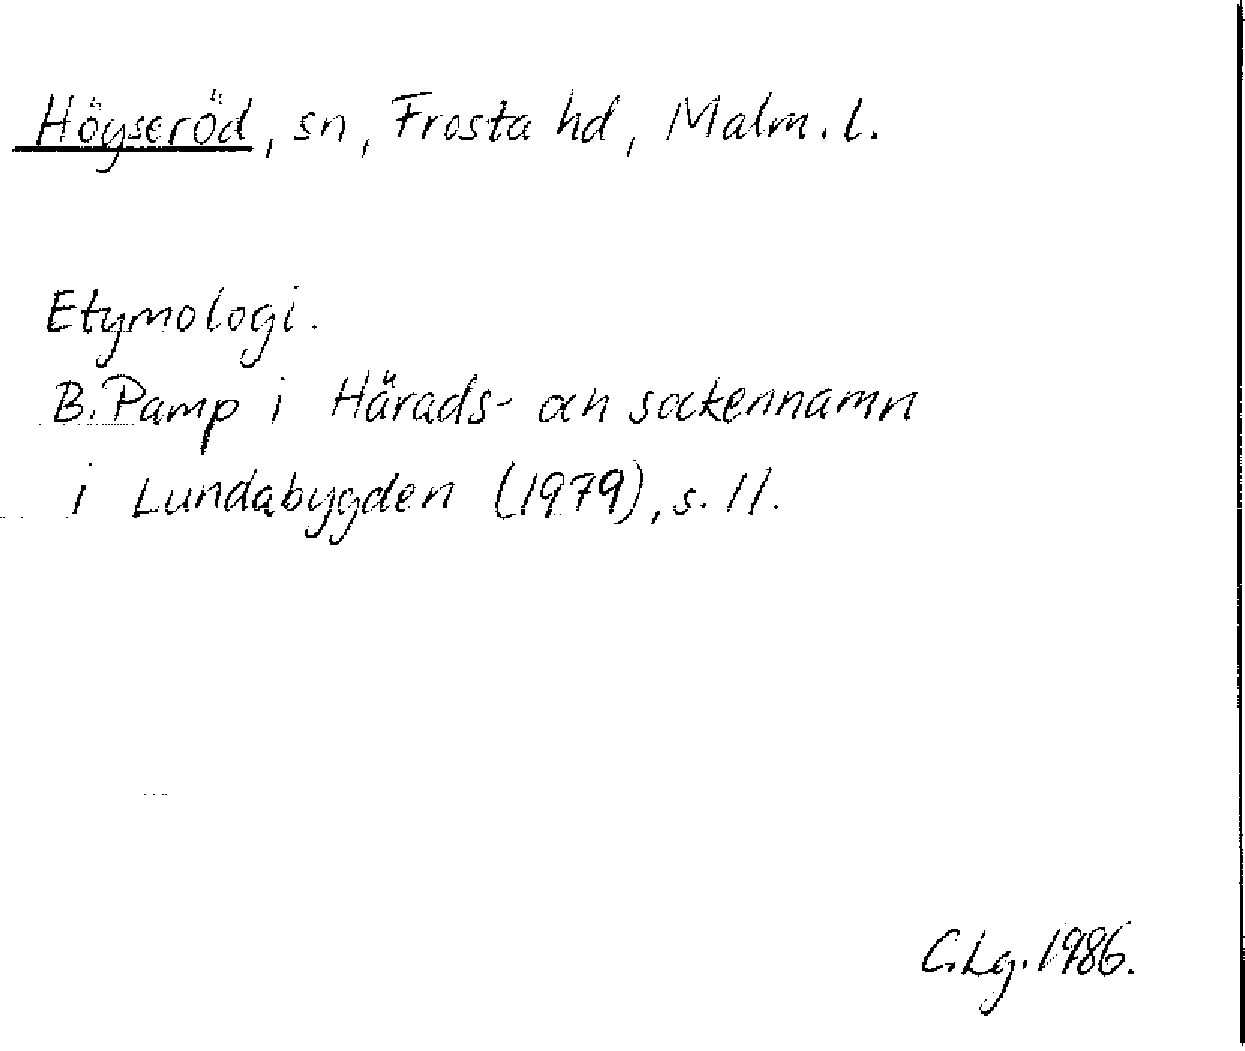 Högseröd, sn, Frosta hd, Malm. l.
Etymologi.
B. Pamp i Härads- och sockennamn
i Lundabygden (1979), s. 11.
C.Lg. 1986.